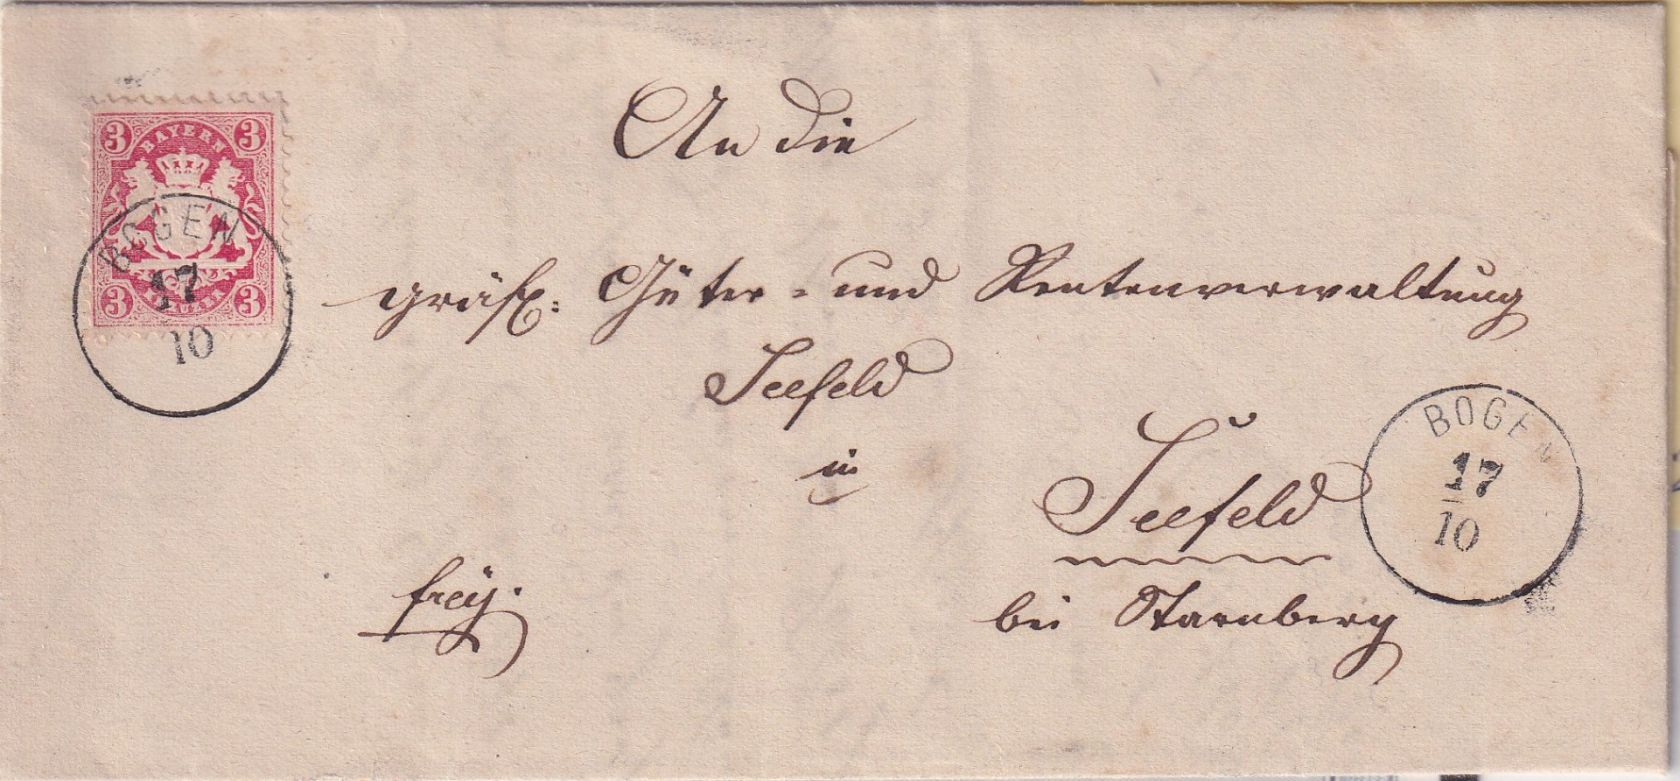 3 BAYERN 3
BOGEN
17
10
3 3
An die
gräfl: Güter- und Rentenverwaltung
Seefeld
in
Seefeld
bei Starnberg
frey.
BOGEN
17
10